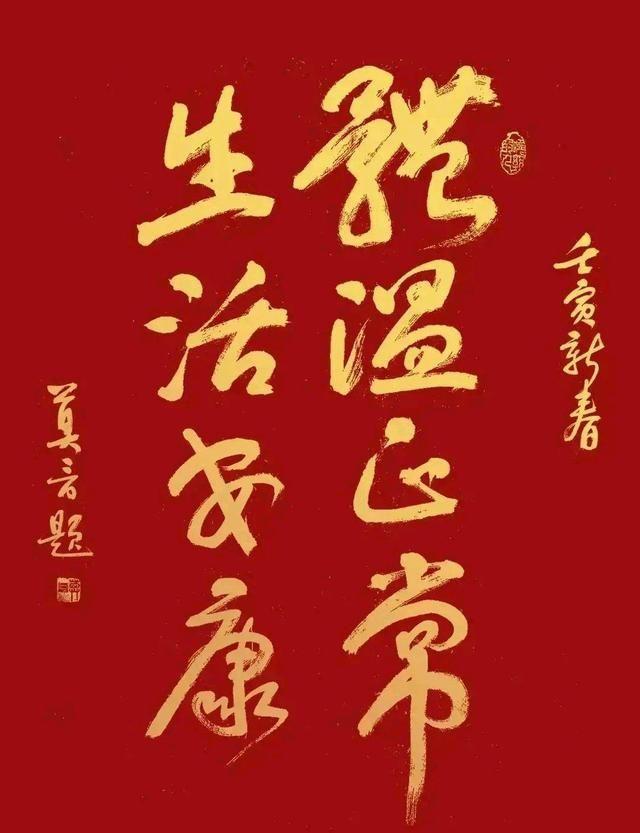 壬寅新春
體温正常
生活安康
莫言题